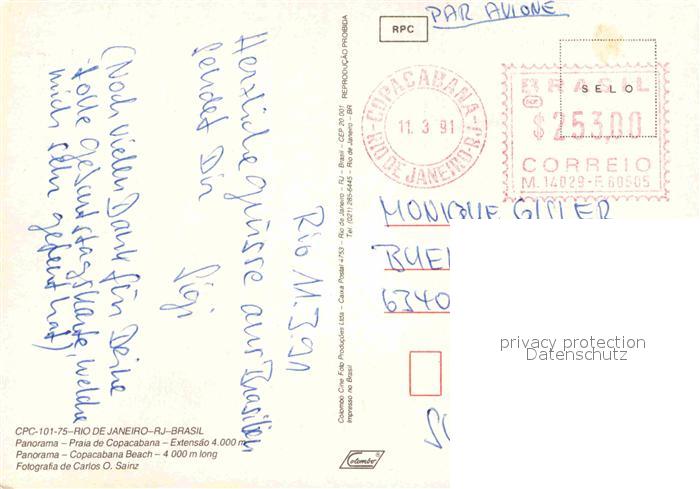 Rio 11.3.91
Herzliche grüsse aus Brasilien
sendet Dir
Sigi
(Noch vielen Dank für Deine
tolle geburtstagskarte, welche
mich sehr gefreut hat)
CPC-101-75–RIO DE JANEIRO–RJ–BRASIL
Panorama – Praia de Copacabana – Extensão 4.000 m
Panorama – Copacabana Beach – 4 000 m long
Fotografia de Carlos O. Sainz
Colombo Cine Foto Produções Ltda – Caixa Postal 4753 – Rio de Janeiro – RJ – Brasil – CEP 20.001 REPRODUÇÃO PROIBIDA
Impresso no Brasil Tel: (021) 285-6445 – Rio de Janeiro – BR
Colombo
RPC
PAR AVIONE
COPACABANA
11.3 91
RIO DE JANEIRO-RJ
BRASIL
SELO
$253,00
CORREIO
M.14029-F.60505
MONIQUE GISLER
BUE
6340
privacy protection
Datenschutz